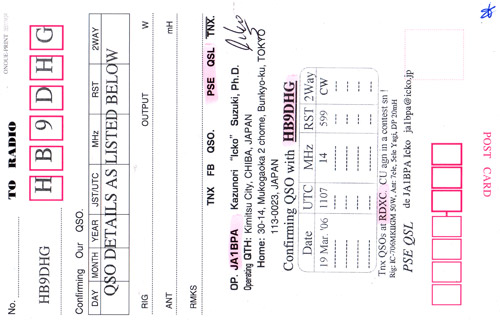 POST CARD
ONLINE-PRINT
TO RADIO
H B 9 D H G
No.
HB9DHG
Confirming Our QSO.
DAY MONTH YEAR JST/UTC MHz RST 2WAY
QSO DETAILS AS LISTED BELOW
RIG OUTPUT W
ANT mH
RMKS
TNX FB QSO. PSE QSL TNX.
OP. JA1BPA Kazunori "Icko" Suzuki, Ph.D.
Operating QTH: Kimitsu City, CHIBA, JAPAN
Home: 30-14, Mukogaoka 2 chome, Bunkyo-ku, TOKYO
113-0023, JAPAN
Confirming QSO with HB9DHG
Date UTC MHz RST 2Way
19 Mar. '06 1107 14 599 CW
Tnx QSOs at RDXC. CU agn in a contest sn !
Rig: IC-706MKIIGM 50W, Ant: 7ele, 5ele Yagi, DP 20mH
PSE QSL de JA1BPA Icko ja1bpa@icko.jp